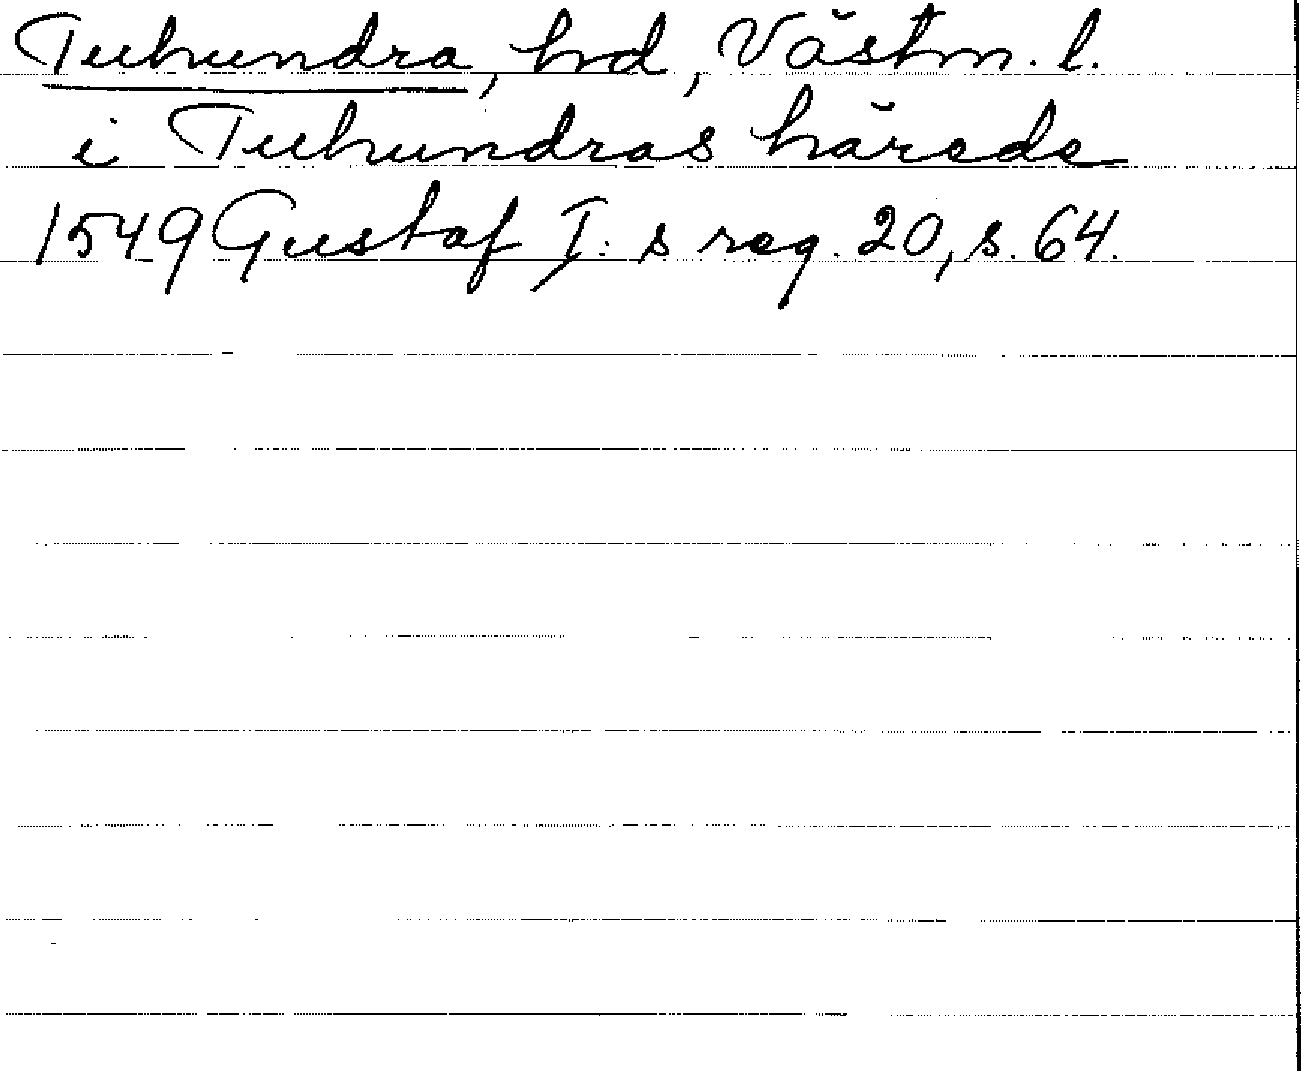 Tuhundra, hd, Västm. l.
i Tuhundras härede
1549 Gustaf I:s reg. 20, s. 64.